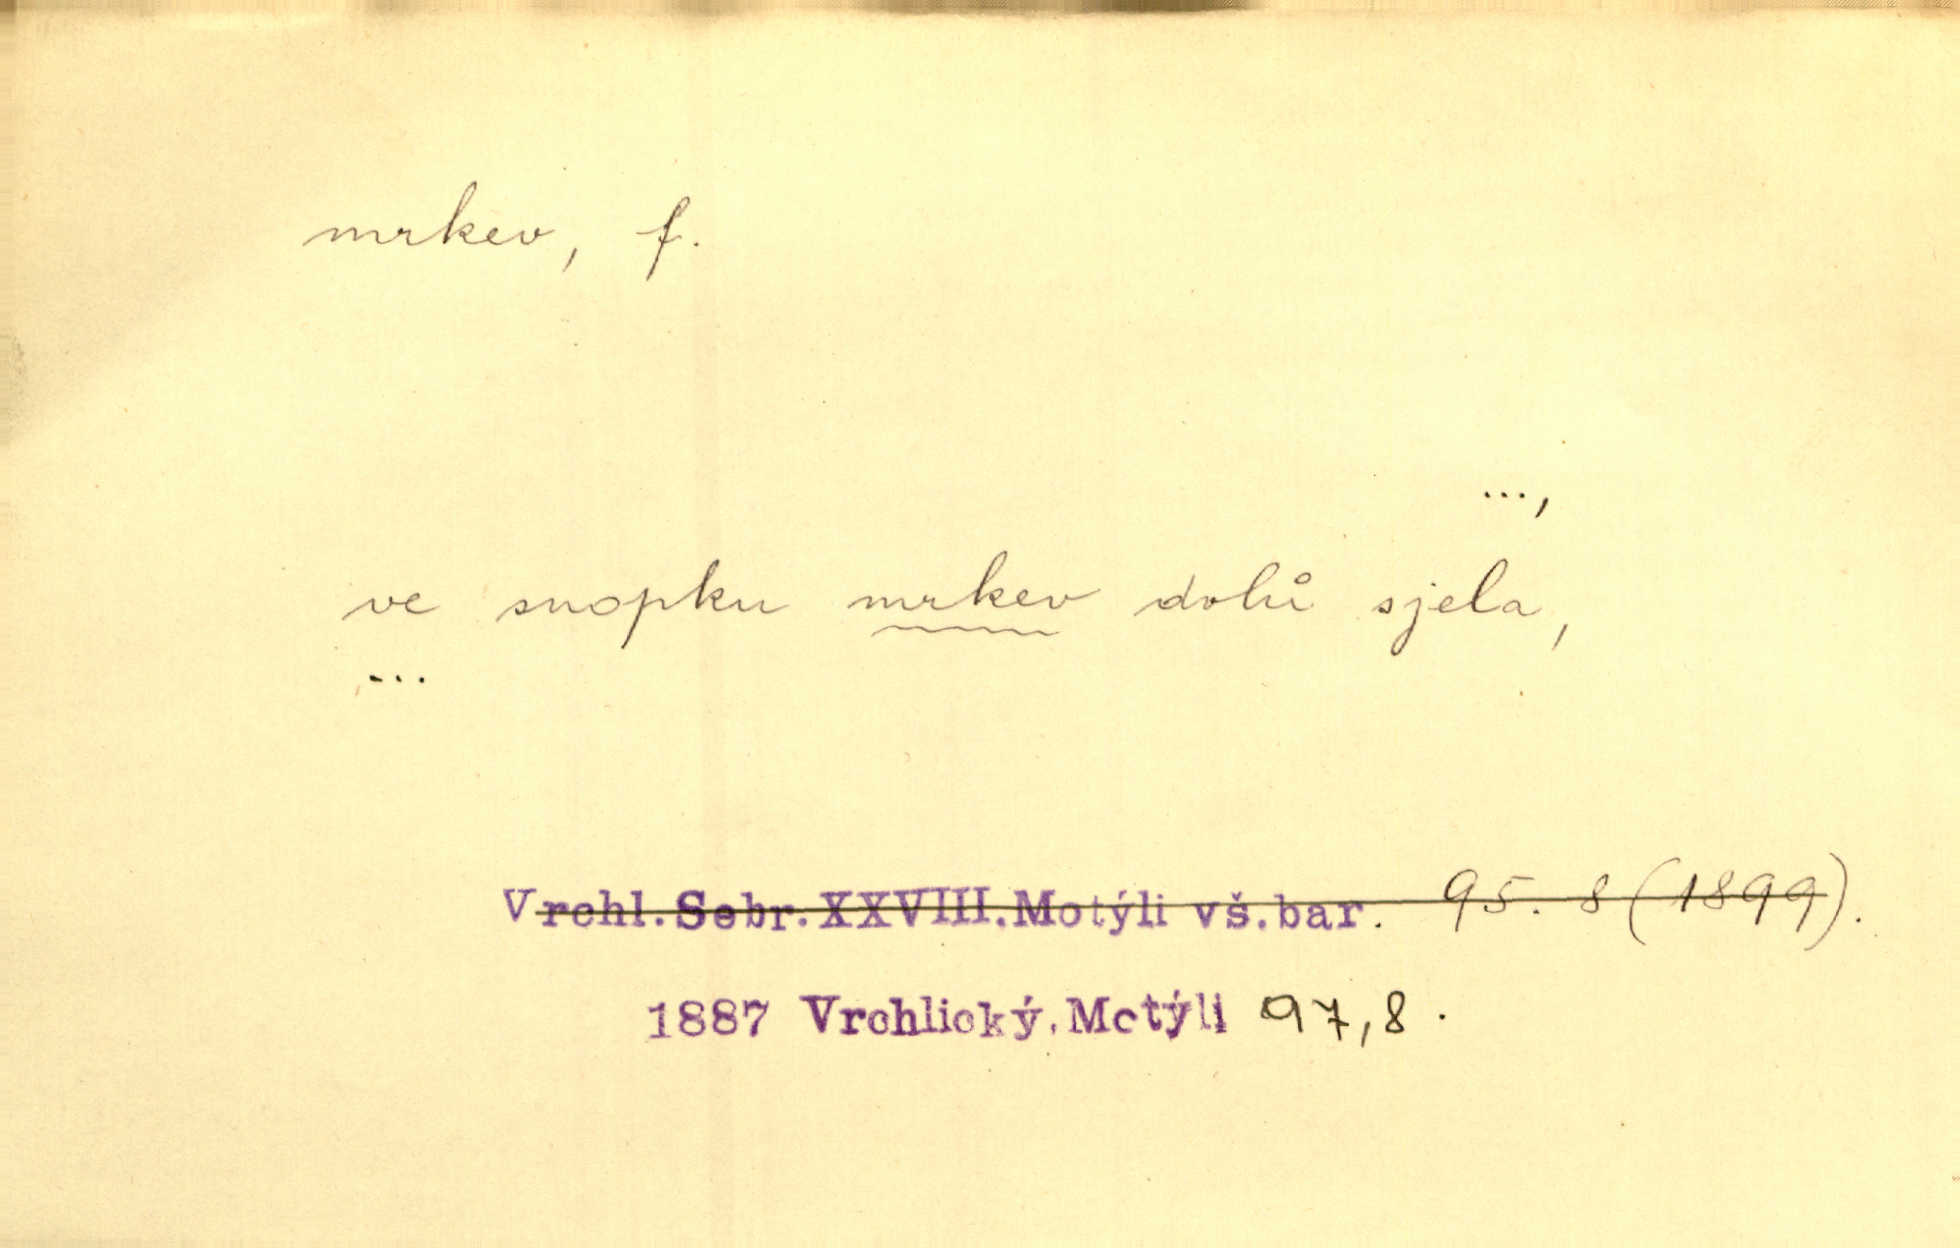 mrkev, f.
...,
ve snopku mrkev dolů sjela,
...
Vrchl. Sebr. XXVIII. Motýli vš. bar. 95. 8 (1899).
1887 Vrchlický, Motýli 97,8.